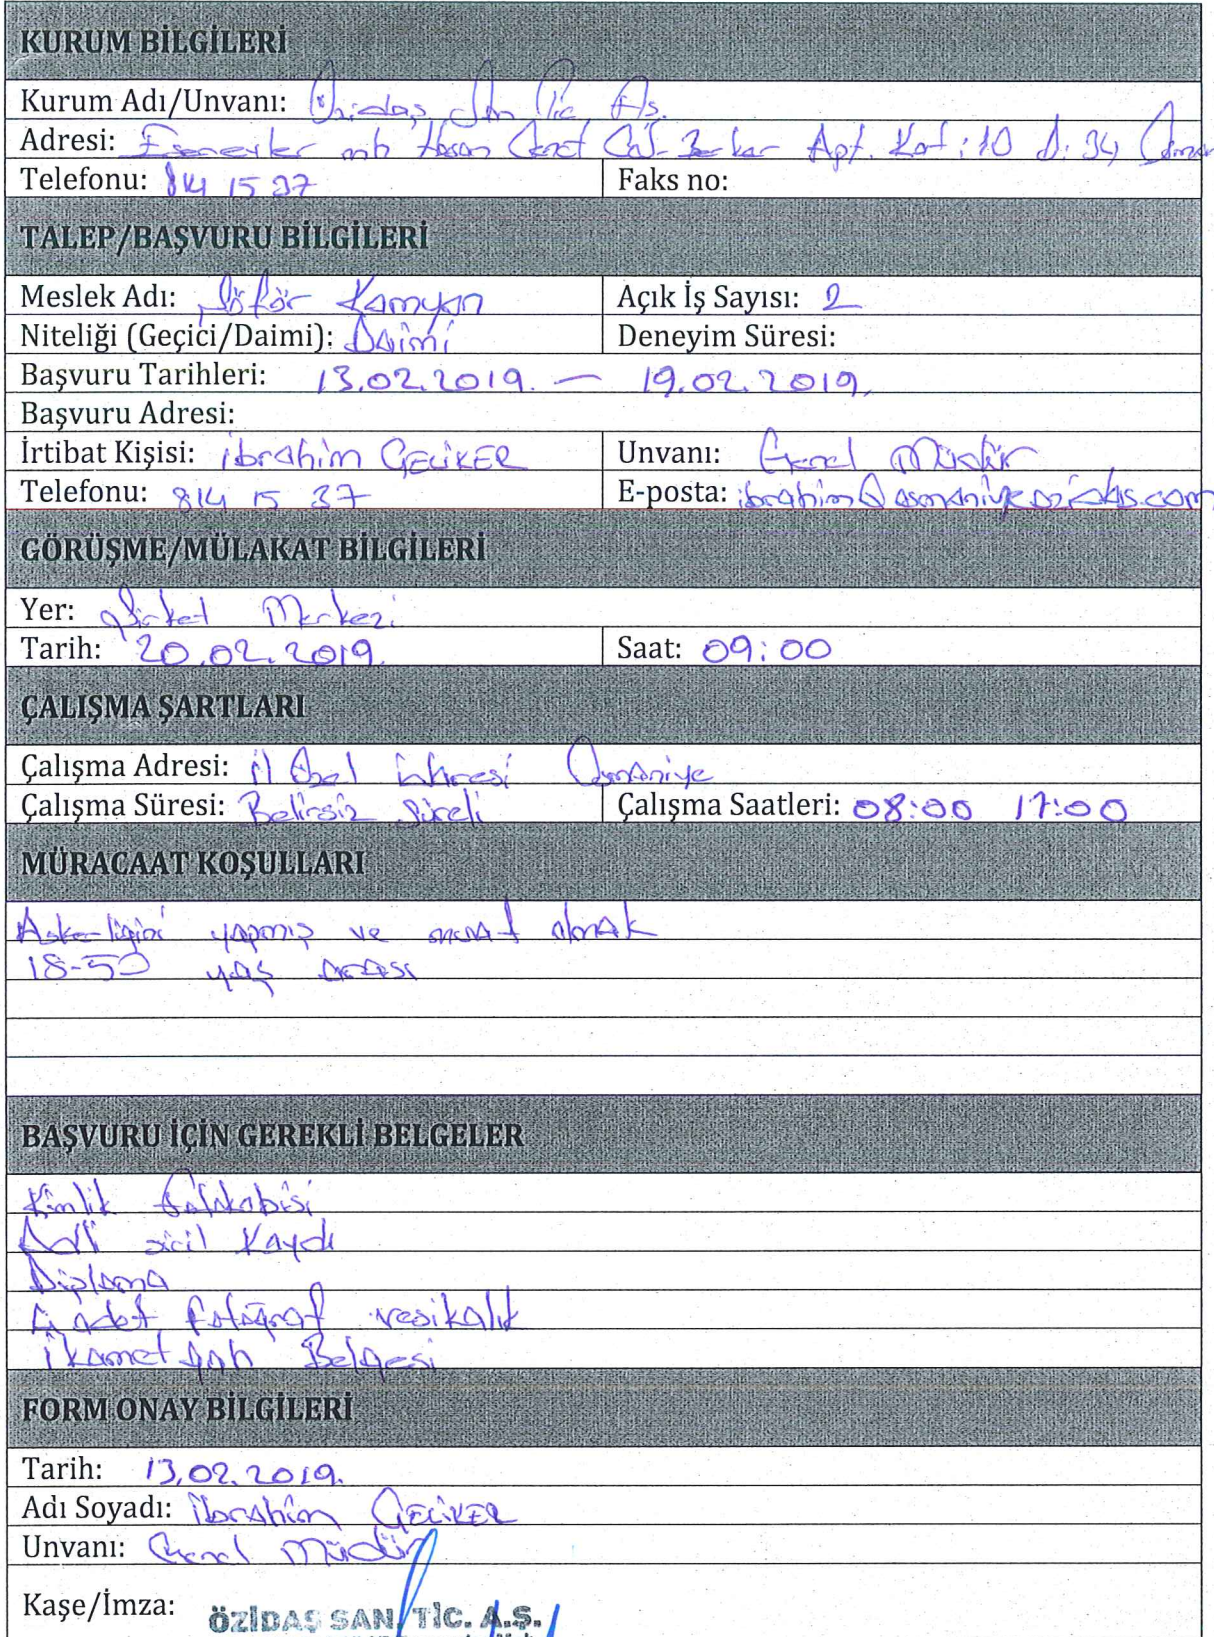 KURUM BİLGİLERİ
Kurum Adı/Unvanı: Özidaş San Tic. A.Ş.
Adresi: Esenevler mh Hasan Cenet Cad. Apt. Kat: 10 D: 34
Telefonu: 814 15 37 Faks no:
TALEP/BAŞVURU BİLGİLERİ
Meslek Adı: Şöför Kamyon Açık İş Sayısı: 2
Niteliği (Geçici/Daimi): Daimi Deneyim Süresi:
Başvuru Tarihleri: 13.02.2019. — 19.02.2019.
Başvuru Adresi:
İrtibat Kişisi: ibrahim GECİKER Unvanı: Genel Müdür
Telefonu: 814 15 37 E-posta: ibrahim@osmaniyeozidas.com
GÖRÜŞME/MÜLAKAT BİLGİLERİ
Yer: Şirket Merkezi
Tarih: 20.02.2019. Saat: 09:00
ÇALIŞMA ŞARTLARI
Çalışma Adresi: il Özel idaresi Osmaniye
Çalışma Süresi: Belirsiz Süreli Çalışma Saatleri: 08:00 17:00
MÜRACAAT KOŞULLARI
Askerliğini yapmış ve muaf olmak
18-50 yaş arası
BAŞVURU İÇİN GEREKLİ BELGELER
Kimlik fotokobisi
Adli sicil Kaydı
Diploma
adet fotoğraf vesikalık
ikametgah Belgesi
FORM ONAY BİLGİLERİ
Tarih: 13.02.2019.
Adı Soyadı: ibrahim GECİKER
Unvanı: Genel Müdür
Kaşe/İmza: ÖZİDAŞ SAN. TİC. A.Ş.